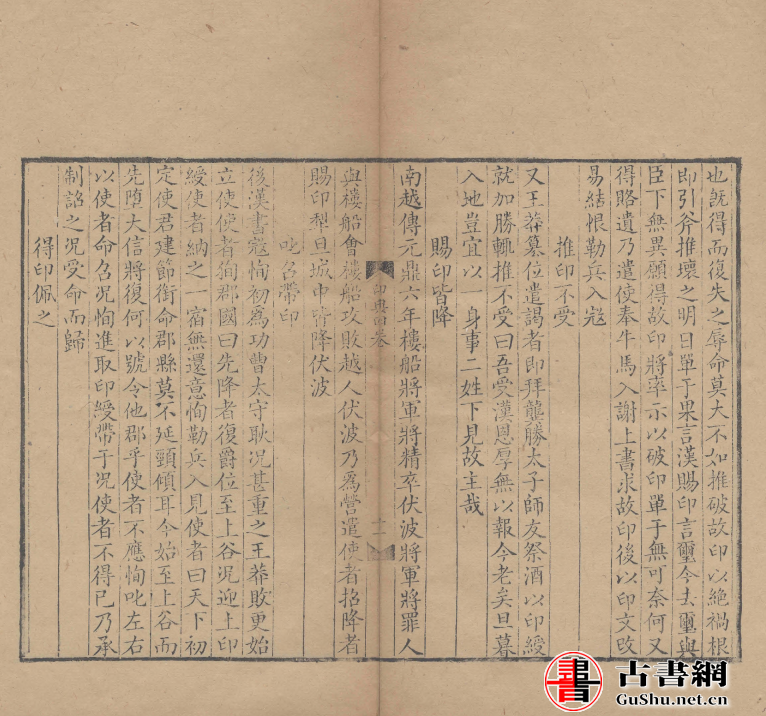 也旣得而復失之辱命莫大不如推破故印以絶禍根
即引斧推壞之明日單于果言漢賜印言璽今去璽與
臣下無異願得故印將率示以破印單于無可奈何又
得賂遺乃遣使奉牛馬入謝上書求故印後以印文改
易結恨勒兵入寇
推印不受
又王莽簒位遣謁者即拜龔勝太子師友祭酒以印綬
就加勝輒推不受曰吾受漢恩厚無以報今老矣旦暮
入地豈宜以一身事二姓下見故主哉
賜印皆降
南越傳元鼎六年樓船將軍將精卒伏波將軍將罪人
印典四卷
十一
與樓船會樓船攻敗越人伏波乃爲營遣使者招降者
賜印犁旦城中皆降伏波
叱召帶印
後漢書寇恂初爲功曹太守耿况甚重之王莽敗更始
立使使者徇郡國曰先降者復爵位至上谷况迎上印
綬使者納之一宿無還意恂勒兵入見使者曰天下初
定使君建節銜命郡縣莫不延頸傾耳今始至上谷而
先墮大信將復何以號令他郡乎使者不應恂叱左右
以使者命召况恂進取印綬帶于况使者不得已乃承
制詔之况受命而歸
得印佩之
古書網
GuShu.net.cn
書